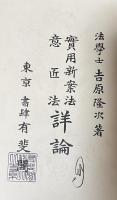 法學士 吉原隆次著
實用新案法
意匠法
詳論
東京 書肆 有斐閣